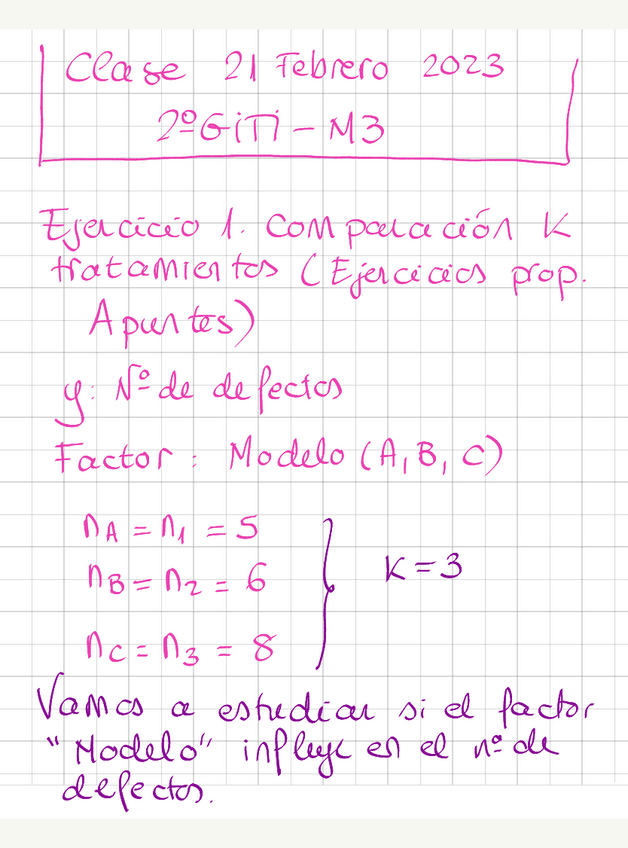 Clase 21 Febrero 2023
2º GiTi - M3
Ejercicio 1. Comparación K
tratamientos (Ejercicios prop.
Apuntes)
y: Nº de defectos
Factor: Modelo (A, B, C)
n_A = n_1 = 5
n_B = n_2 = 6
K = 3
n_C = n_3 = 8
Vamos a estudiar si el factor
"Modelo" influye en el nº de
defectos.